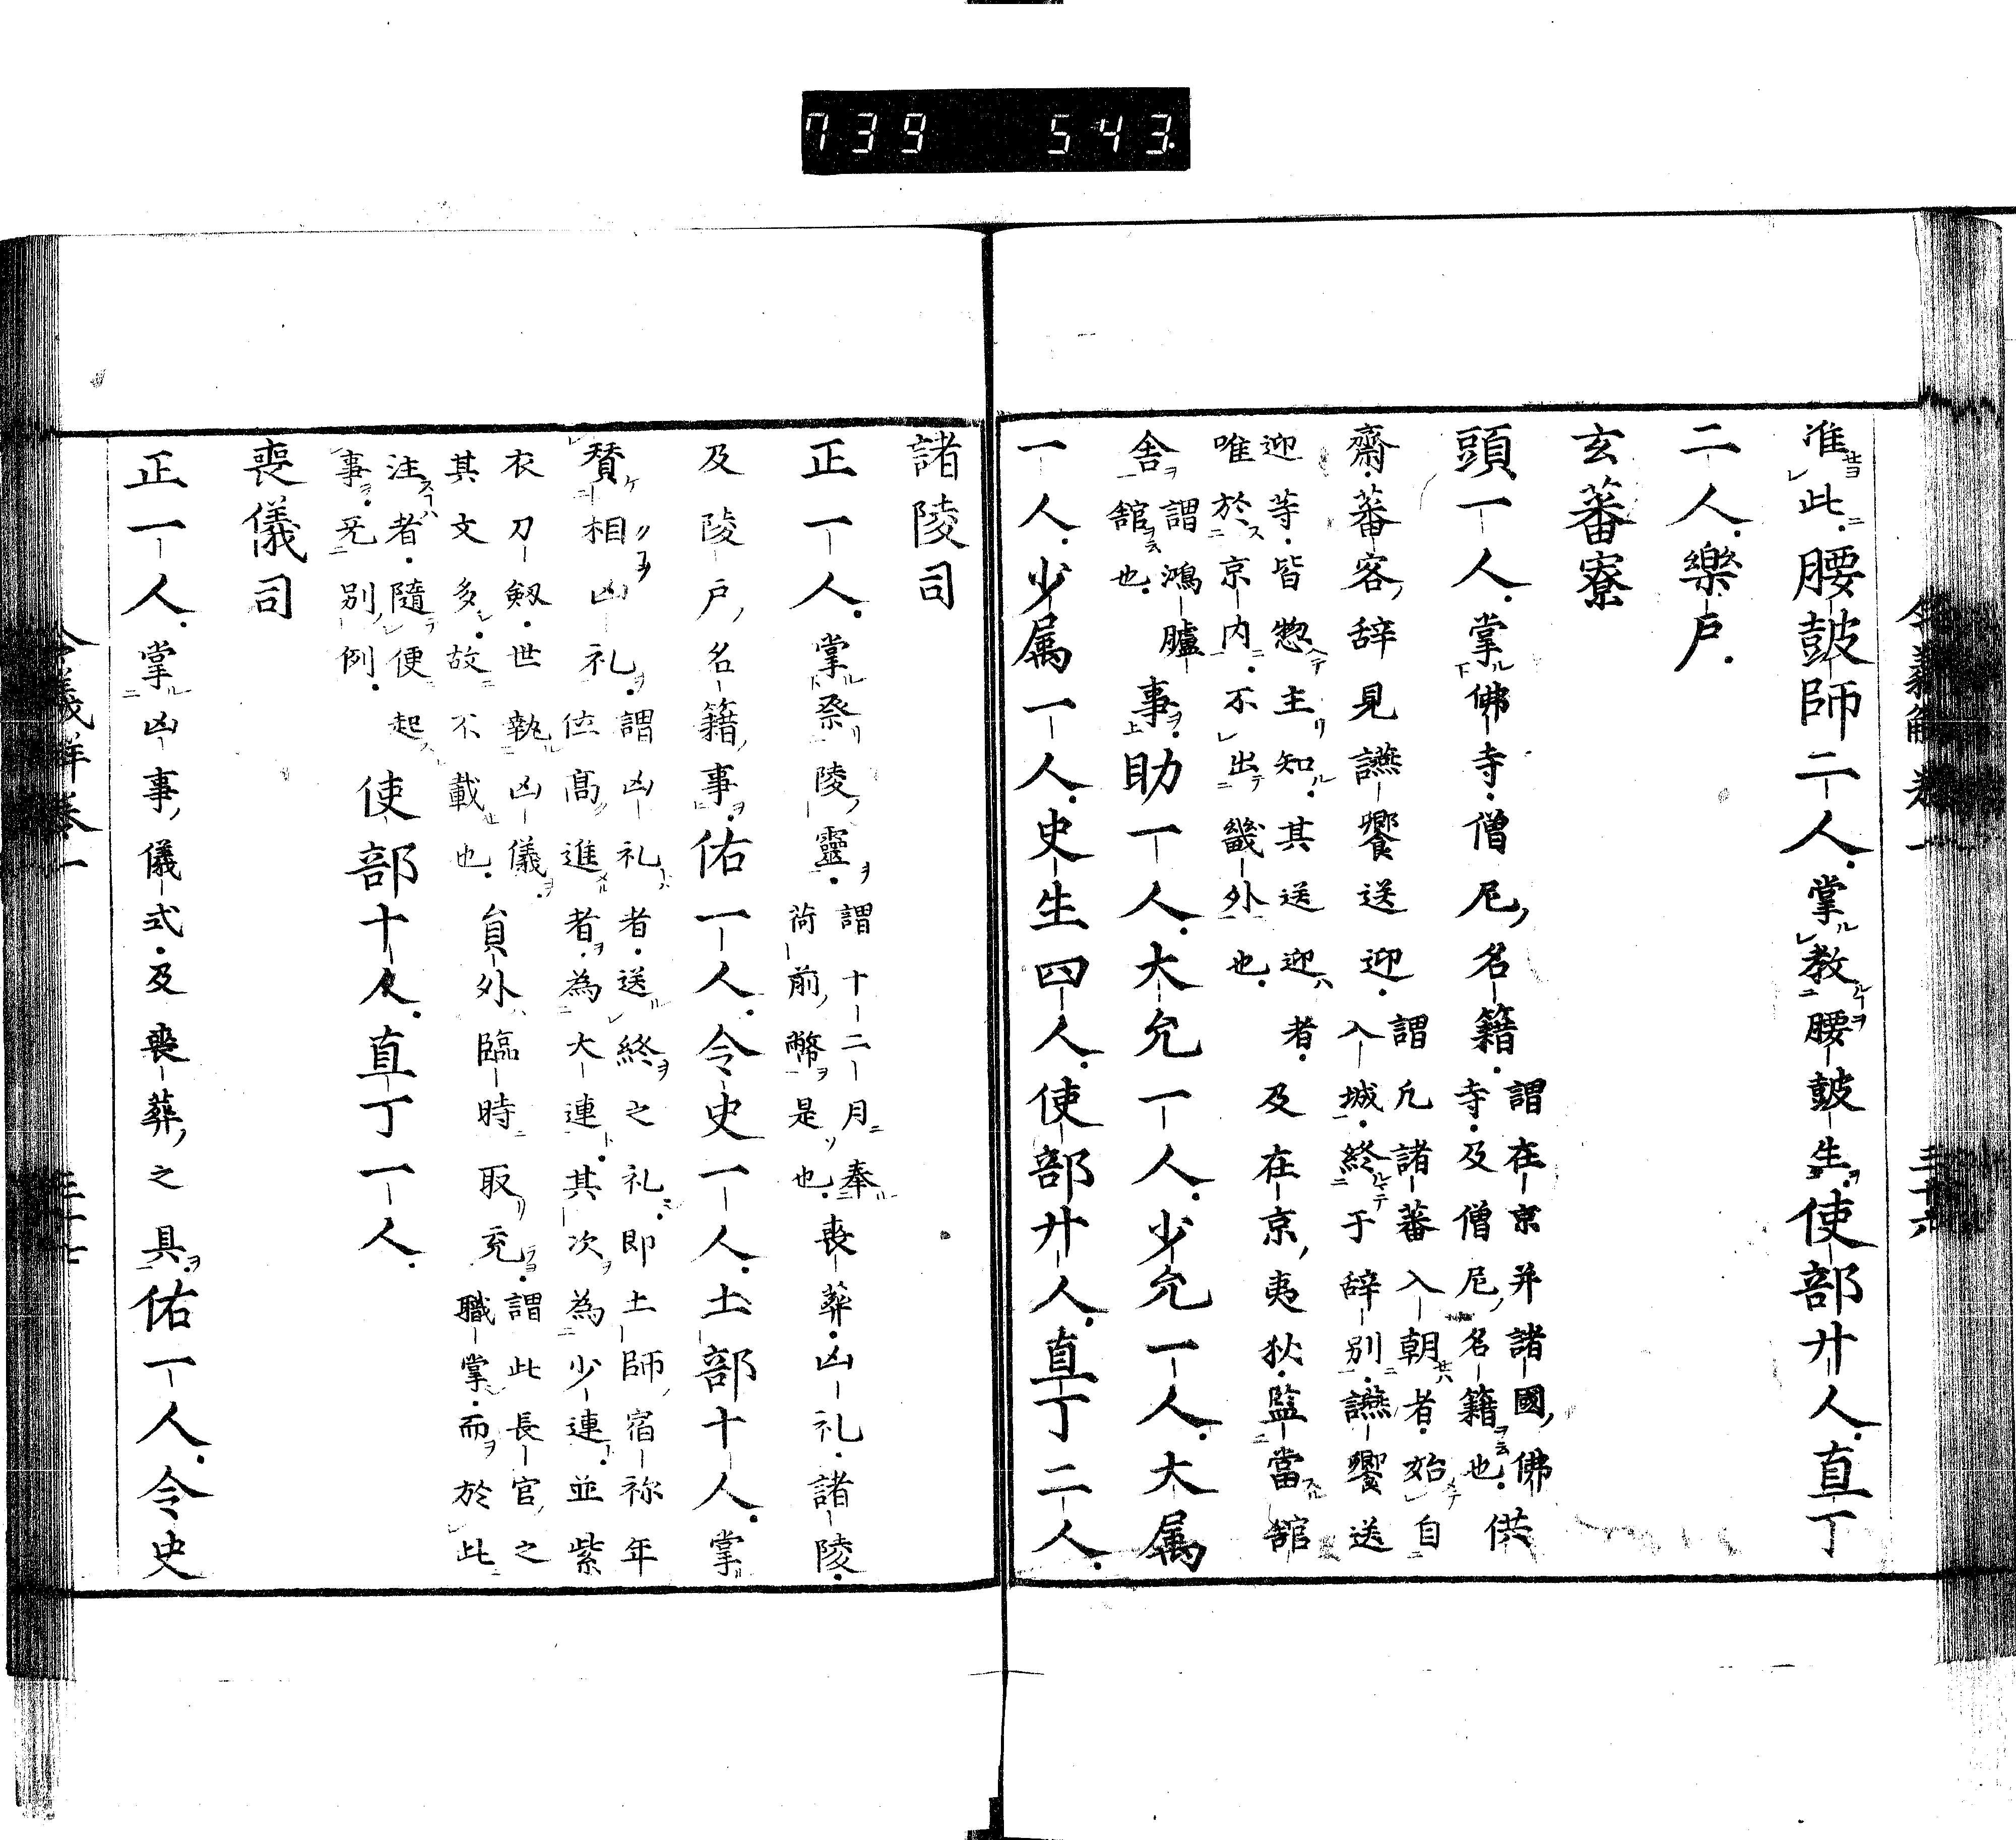 739 543
准此腰皷師二人掌教腰皷生使部廿人直丁
二人樂戸
玄蕃寮
頭一人掌佛寺僧尼名籍謂在京并諸國佛
寺及僧尼名籍也供
齋蕃客辞見讌饗送迎謂凡諸蕃入朝者始自
入城終于辞別讌饗送
迎等皆惣主知其送迎者
唯於京内不出畿外也及在京夷狄監當舘
舎謂鴻臚
舘也事助一人大允一人少允一人大属
一人少属一人史生四人使部廿人直丁二人
諸陵司
正一人掌祭陵靈謂十二月奉
荷前幣是也喪葬凶礼諸陵
及陵戸名籍事佑一人令史一人土部十人掌
賛相凶礼謂凶礼者送終之礼即土師宿祢年
位髙進者為大連其次為少連並紫
衣刀剱世執凶儀
其文多故不載也負外臨時取充謂此長官之
職掌而於此
注者隨便起
事旡別例使部十人直丁一人
喪儀司
正一人掌凶事儀式及喪葬之具佑一人令史
令義解巻一
三十六